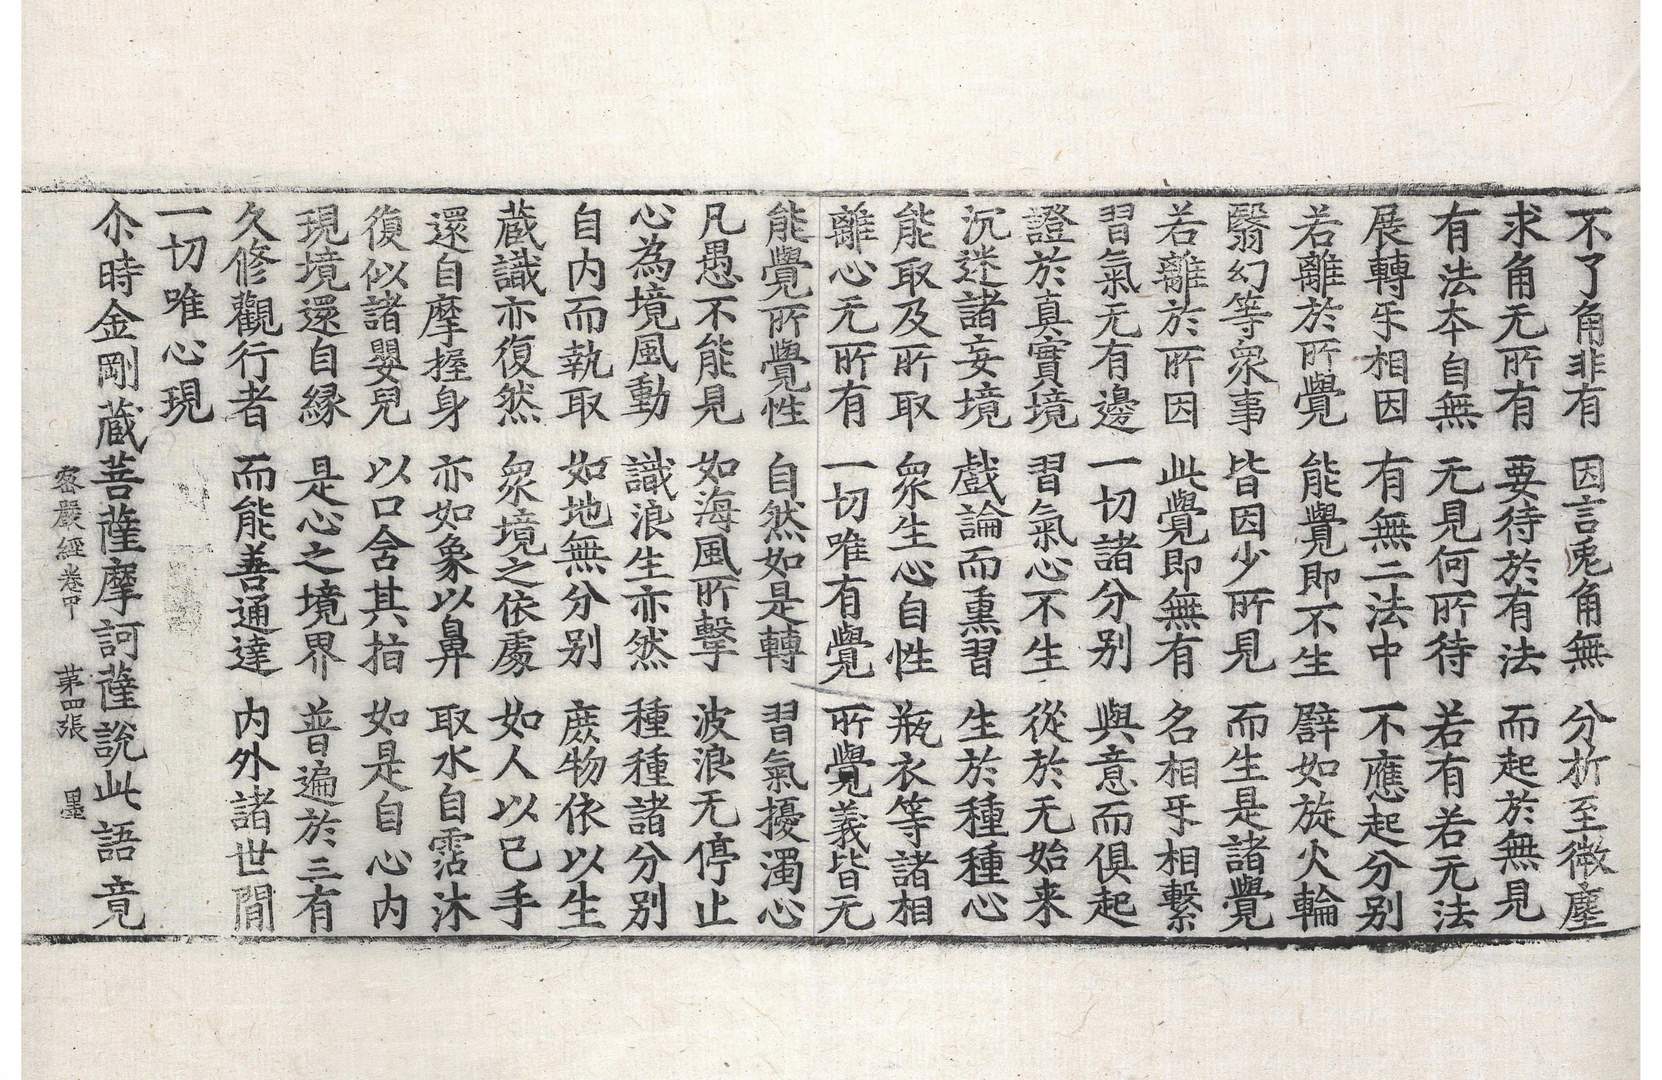 不了角非有 因言兎角無 分折至微塵
求角无所有 要待於有法 而起於無見
有法本自無 无見何所待 若有若无法
展轉㸦相因 有無二法中 不應起分别
若離於所覺 能覺即不生 譬如旋火輪
翳幻等衆事 皆因少所見 而生是諸覺
若離於所因 此覺即無有 名相㸦相繫
習氣无有邊 一切諸分别 與意而俱起
證於真實境 習氣心不生 從於无始来
沉迷諸妄境 戲論而熏習 生於種種心
能取及所取 衆生心自性 瓶衣等諸相
離心无所有 一切唯有覺 所覺義皆无
能覺所覺性 自然如是轉 習氣擾濁心
凡愚不能見 如海風所擊 波浪无停止
心為境風動 識浪生亦然 種種諸分别
自内而執取 如地無分别 庶物依以生
蔵識亦復然 衆境之依處 如人以己手
還自摩握身 亦如象以鼻 取水自霑沐
復似諸嬰兒 以口含其指 如是自心内
現境還自緣 是心之境界 普遍於三有
久修觀行者 而能善通達 内外諸世間
一切唯心現
尒時金剛蔵菩薩摩訶薩說此語竟
密嚴經卷中 第四張 墨